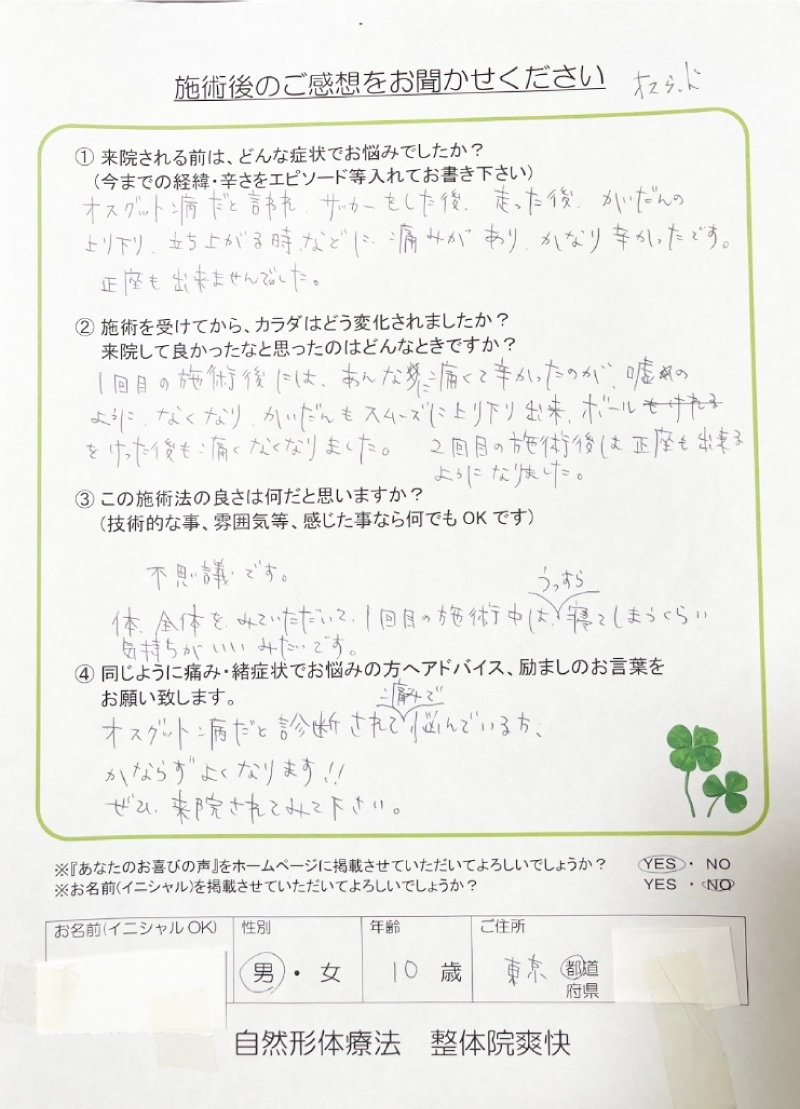 施術後のご感想をお聞かせください
オスグッド
① 来院される前は、どんな症状でお悩みでしたか？
（今までの経緯・辛さをエピソード等入れてお書き下さい）
オスグット病だと言われ、サッカーをした後、走った後、かいだんの
上り下り、立ち上がる時、などに、痛みがあり、かなり辛かったです。
正座も出来ませんでした。
② 施術を受けてから、カラダはどう変化されましたか？
来院して良かったなと思ったのはどんなときですか？
1回目の施術後には、あんなに痛くて辛かったのが、嘘の
ように、なくなり、かいだんもスムーズに上り下り出来、ボールもけれる
をけった後も痛くなくなりました。 2回目の施術後は正座も出来る
ようになりました。
③ この施術法の良さは何だと思いますか？
（技術的な事、雰囲気等、感じた事なら何でもOKです）
不思議です。
うっすら
体、全体を、みていただいて、1回目の施術中は、寝てしまうくらい
気持ちがいいみたいです。
④ 同じように痛み・緒症状でお悩みの方へアドバイス、励ましのお言葉を
お願い致します。
痛みで
オスグット病だと診断されて悩んでいる方、
かならずよくなります!!
ぜひ、来院されてみて下さい。
※『あなたのお喜びの声』をホームページに掲載させていただいてよろしいでしょうか？ YES ・ NO
※お名前(イニシャル)を掲載させていただいてよろしいでしょうか？ YES ・ NO
お名前(イニシャル OK) 性別 年齢 ご住所
男 ・ 女 10 歳 東京 都道
府県
自然形体療法 整体院爽快